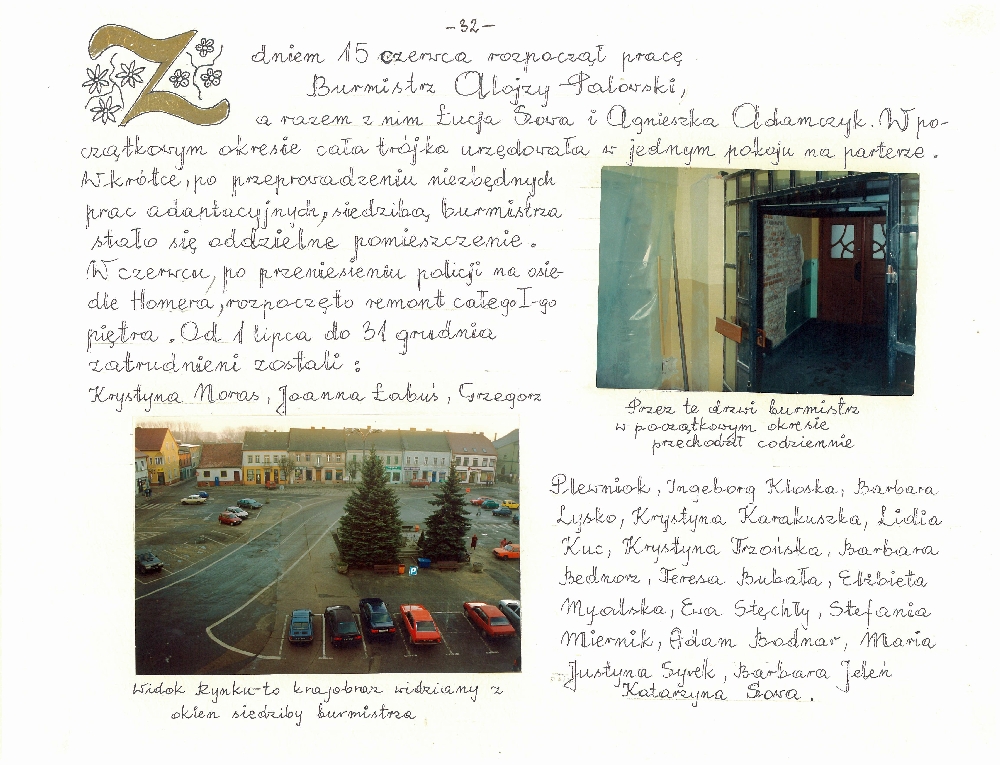 -32-
Z dniem 15 czerwca rozpoczął pracę
Burmistrz Alojzy Palowski,
a razem z nim Łucja Sowa i Agnieszka Adamczyk. W po-
czątkowym okresie cała trójka urzędowała w jednym pokoju na parterze.
Wkrótce, po przeprowadzeniu niezbędnych
prac adaptacyjnych, siedzibą burmistrza
stało się oddzielne pomieszczenie.
W czerwcu, po przeniesieniu policji na osie-
dle Homera, rozpoczęto remont całego I-go
piętra. Od 1 lipca do 31 grudnia
zatrudnieni zostali:
Krystyna Noras, Joanna Łabuś, Grzegorz
Przez te drzwi burmistrz
w początkowym okresie
przechodził codziennie
Plewniok, Ingeborg Kłoska, Barbara
Łysko, Krystyna Karakuszka, Lidia
Kuc, Krystyna Trzońska, Barbara
Bednorz, Teresa Bubała, Elżbieta
Myalska, Ewa Stęchły, Stefania
Miernik, Adam Bodnar, Maria
Justyna Syrek, Barbara Jeleń
Katarzyna Sowa.
Widok Rynku-to krajobraz widziany z
okien siedziby burmistrza